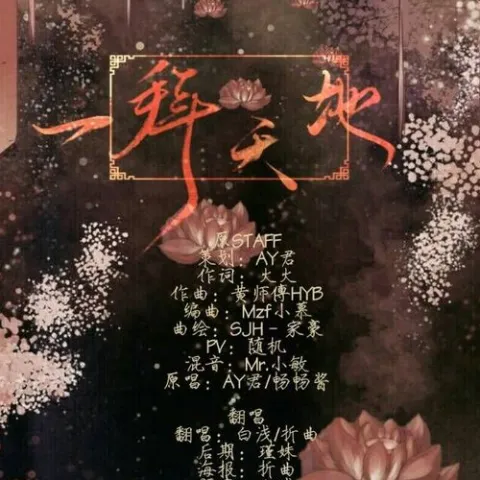 一拜天地
原STAFF
策划：AY君
作词：火火
作曲：黄师傅HYB
编曲：Mzf小慕
曲绘：SJH - 家豪
PV：随机
混音：Mr.小敏
原唱：AY君/畅畅酱
翻唱
翻唱：白浅/折曲
后期：瑾妹
海报：折曲